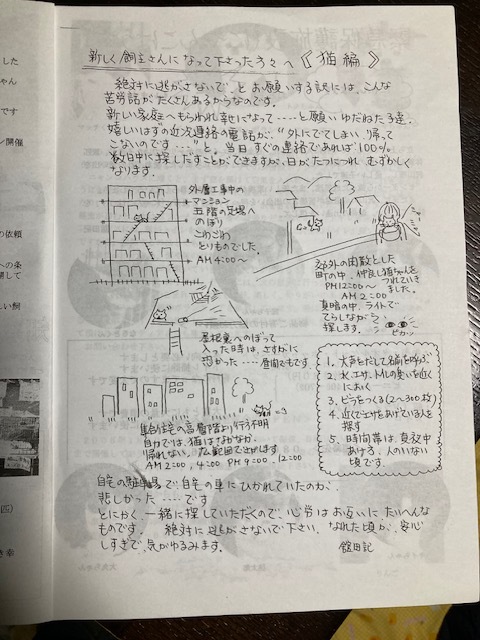 新しく飼主さんになって下さった方々へ《猫編》
絶対に逃がさないで、とお願いする訳には、こんな
苦労話がたくさんあるからなのです。
新しい家族へもらわれ幸せになって‥‥と願いゆだねた子達、
嬉しいはずの近況連絡の電話が、"外にでてしまい、帰って
こないのです…"と。当日、すぐの連絡であれば100%
数日中に探しだすことができますが、日がたつにつれ、むずかしく
なります。
外層工事中の
マンション
五階の足場へ
のぼり
こわごわ
とりものでした。
AM4:00〜
郊外の閑散とした
町の中、仲良し猫ちゃんを
つれていき
ました。
PM12:00〜
AM2:00
真暗の中、ライトで
てらしながら
探します。
ピカッ
屋根裏へのぼって
入った時は、さすがに
恐かった‥‥昼間でもです。
集合住宅の高層階より行方不明
自力では、猫はなかなか
帰れない。広範囲でさがす
AM2:00, 4:00 PM9:00, 12:00
1. 大声をだして名前を呼ぶ
2. 水、エサ、トイレの臭いを近く
におく
3. ビラをつくる(2〜300枚)
4. 近くでエサをあげている人を
探す
5. 時間帯は、真夜中
あける、人のいない
頃です。
自宅の駐車場で自宅の車にひかれていたのが、
悲しかった‥‥です
とにかく、一緒に探していただくので、心労はお互いに、たいへんな
ものです。 絶対に逃がさないで下さい。なれた頃が、安心
しすぎで、気がゆるみます。
舘田記
した
ちゃん
です
ン開催
の依頼
への条
開して
しい飼
(匹)
き幸